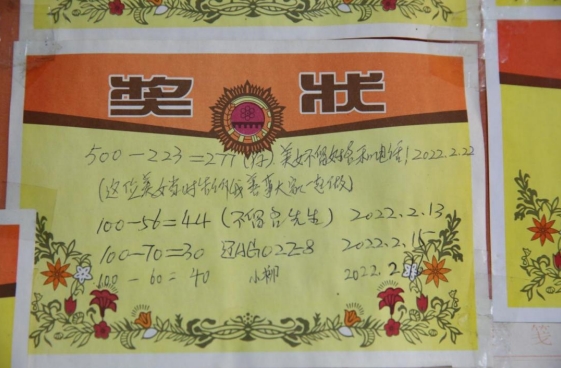 奖状
500-223=277(存)美女不留姓名和电话!2022.2.22
(这位美女当时告诉我善事大家一起做)
100-56=44(不留名先生) 2022.2.13
100-70=30 AG02Z8 2022.2.15
100-60=40 小柳 2022.2